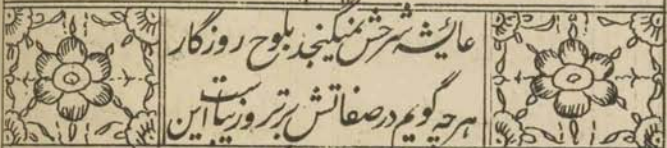 عایشه شرحش نمیگنجد بلوح روزگار
هرچه گویم در صفاتش برتر و زیباست این